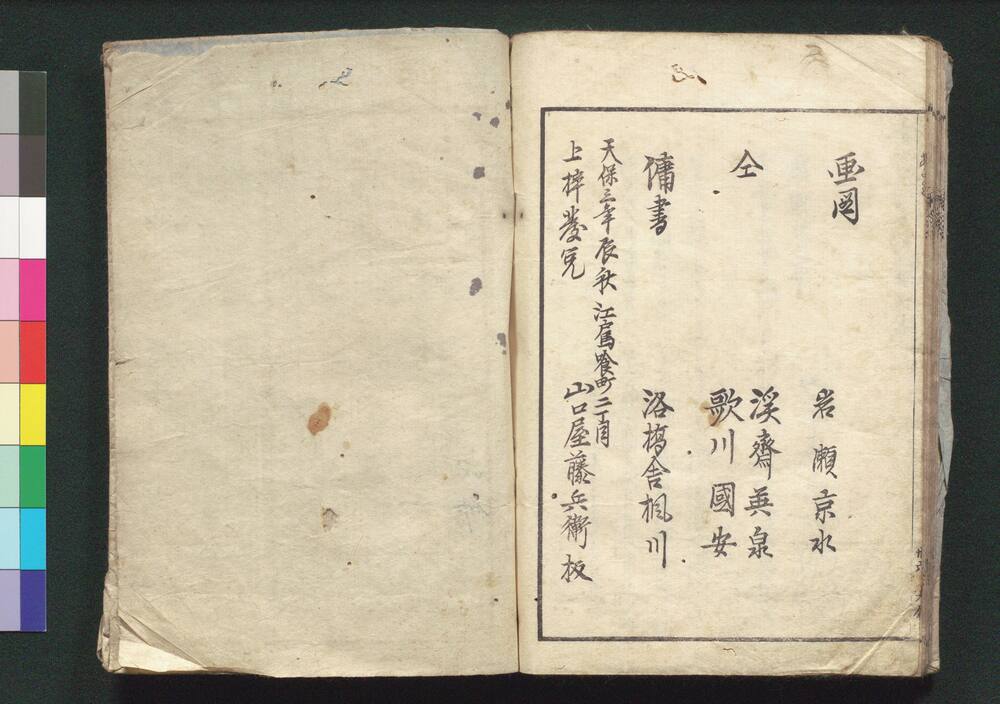 画図
岩瀬京水
仝
渓齋英泉
歌川國安
傭書
洛橋舎楓川
天保三年辰秋
江戸馬喰町二丁目
上梓發兌
山口屋藤兵衛板